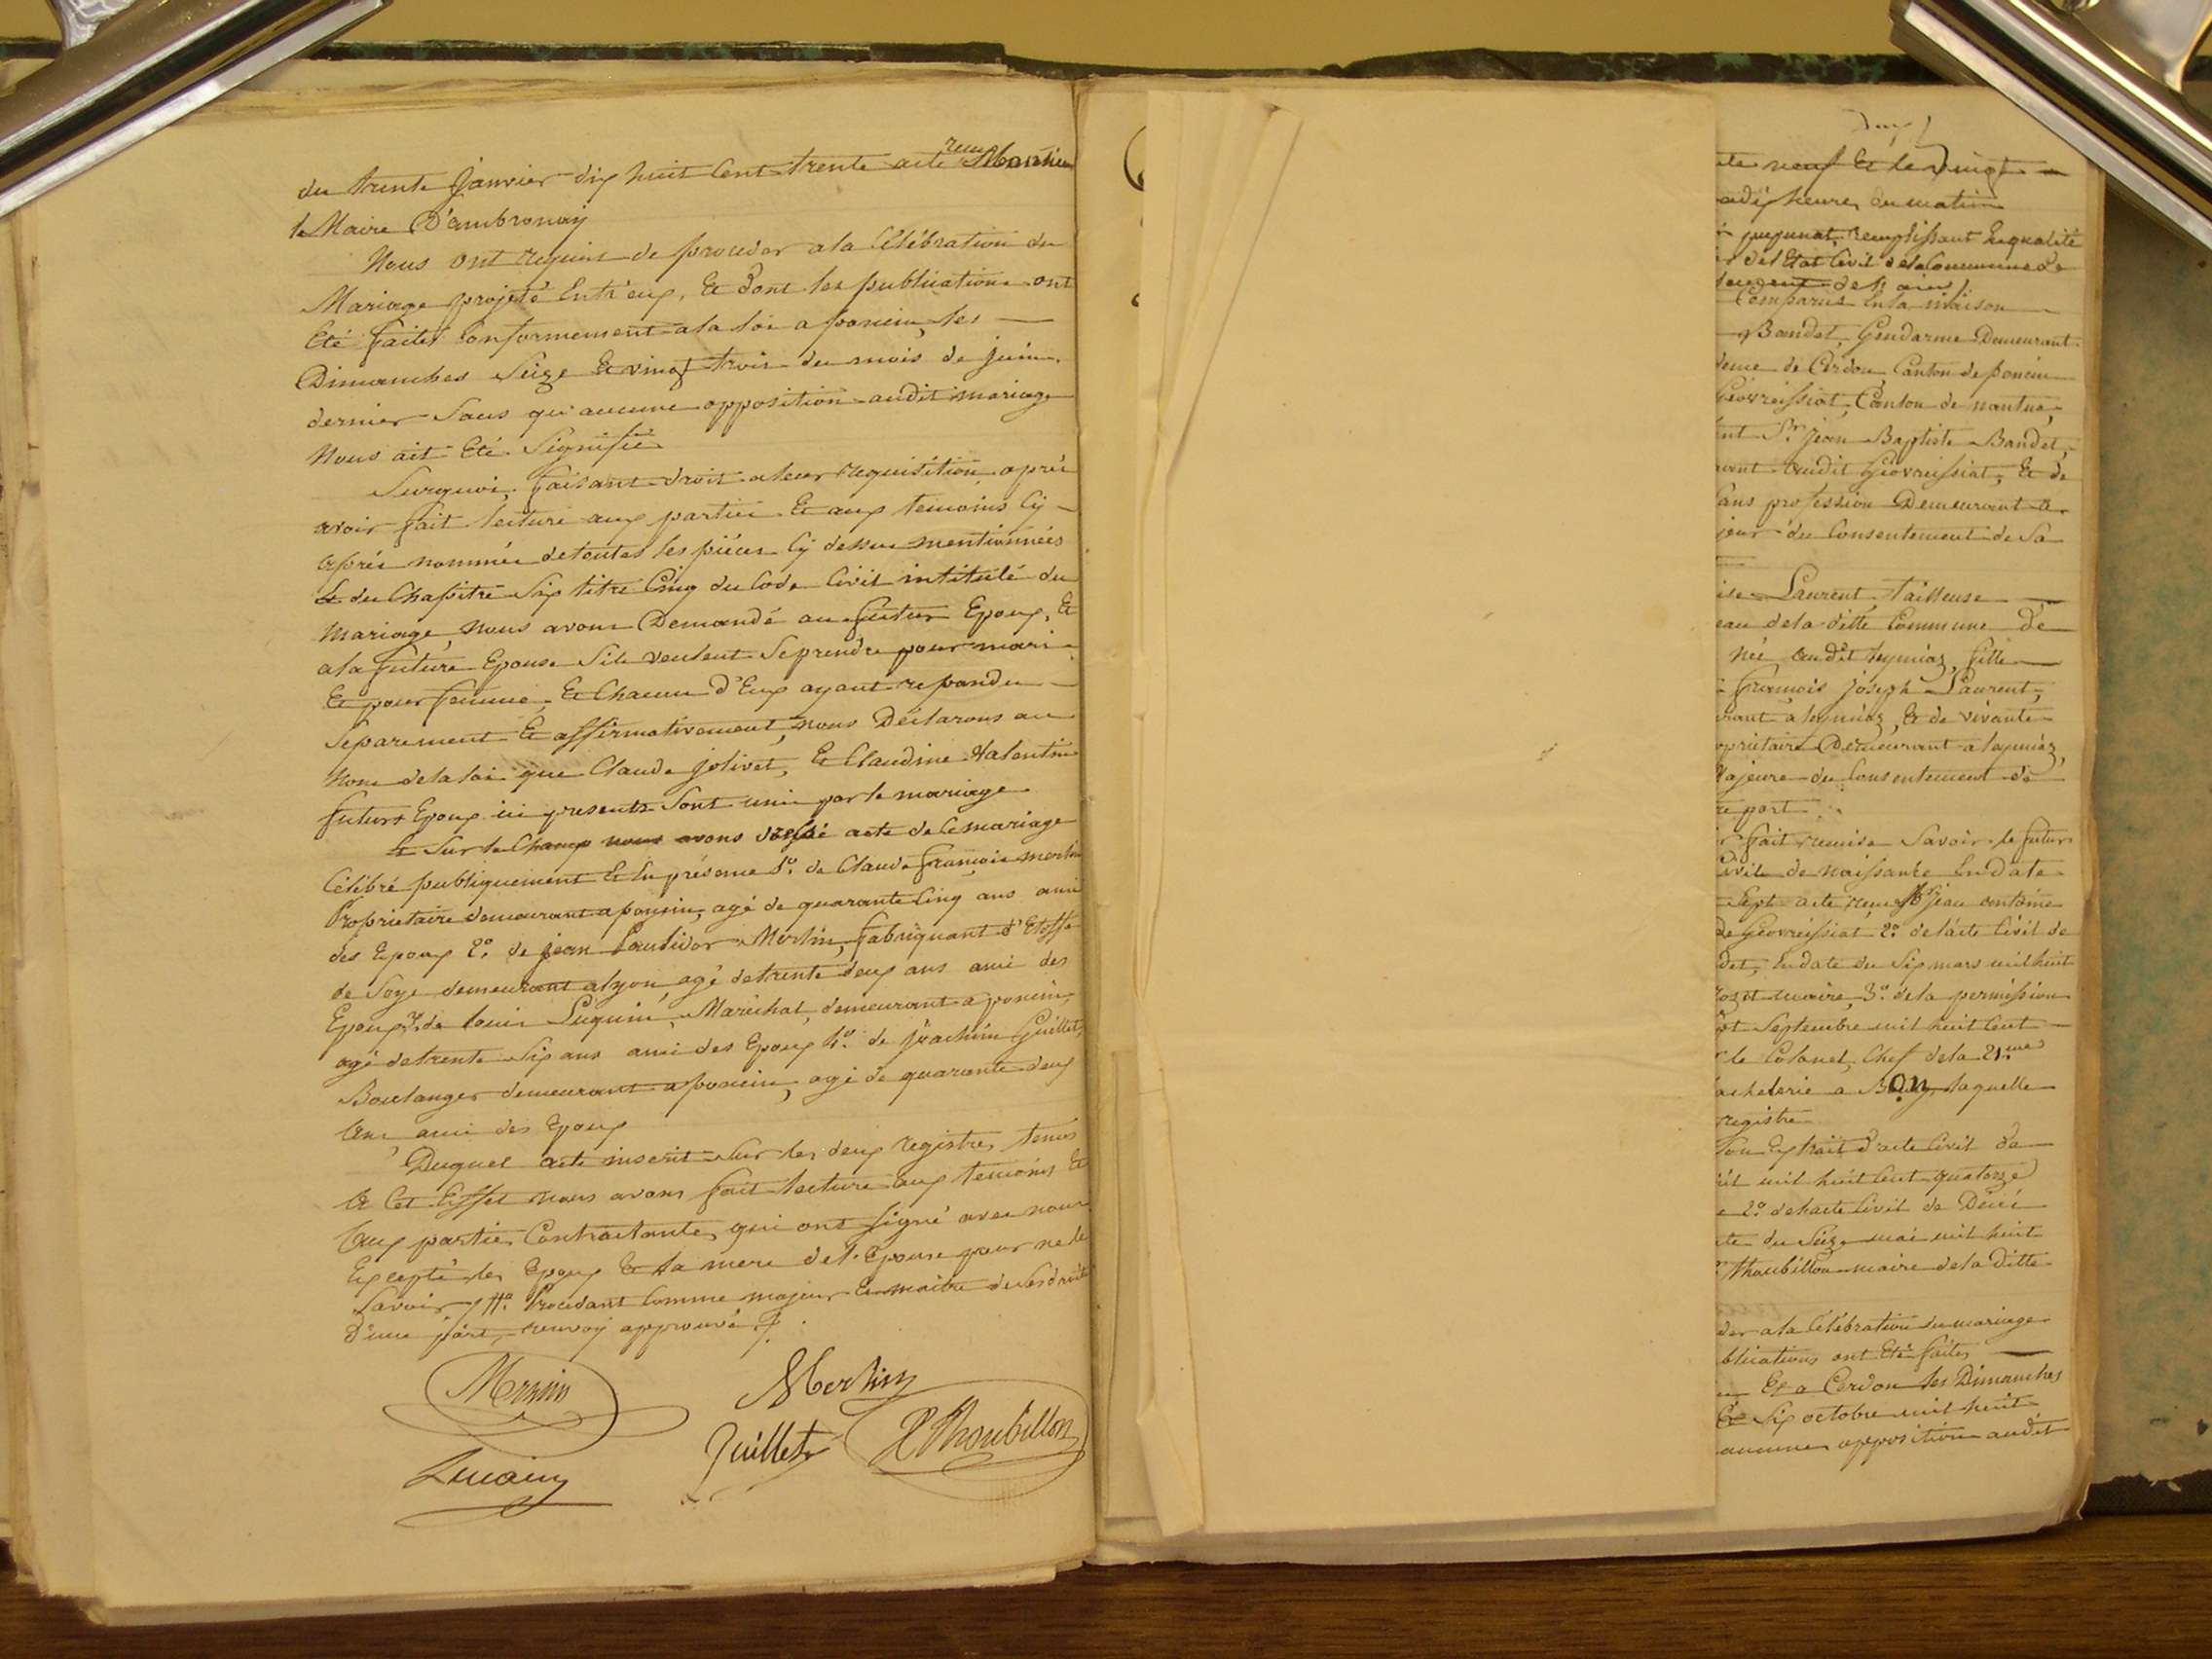 du trente Janvier dix huit Cent trente acte reçu
le Maire D'ambronay
Nous ont requis de proceder a la Célébration du
Mariage projeté Entr'eux, Et dont les publications ont
Eté faites Conformement a la loi a poncin, les
Dimanches Seize Et vingt trois du mois de juin
dernier Sans qu'aucune opposition audit mariage
Nous ait Eté Signifié
Surquoi, faisant droit a leur requisition, aprés
avoir fait lecture aux parties Et aux temoins Cy
Aprés nommés de toutes les piéces Cy dessus mentionnées
Et du Chapitre Six titre Cinq du Code Civil intitulé du
Mariage, Nous avons Demandé au futur Epoux, Et
a la future Epouse Sils veulent Se prendre pour mari
Et pour femme, Et Chacun d'Eux ayant repondu
Separement Et affirmativement, Nous Déclarons au
Nom de la loi que Claude jolivet, Et Claudine Valentin
futurs Epoux ici presents Sont unis par le mariage
Et Sur le Champ nous avons dressé acte de Ce mariage
Célébré publiquement Et En présence 1º. de Claude françois merlin
Propriétaire demeurant a poncin, agé de quarante Cinq ans ami
des Epoux 2º. de jean Merlin, fabriquant d'Etoffe
de Soye demeurant a lyon, agé de trente deux ans ami des
Epoux 3º. de louis Maréchal, demeurant a poncin,
agé de trente Six ans ami des Epoux 4º. de joachim Guillet,
Boulanger demeurant a poncin, agé de quarante deux
Ans, ami des Epoux
Duquel acte inscrit Sur les deux registres tenus
A Cet Effet nous avons fait lecture aux temoins Et
Aux parties Contractantes qui ont Signé avec nous
Excepté les Epoux Et la mere de l'Epouse pour ne le
Savoir, Procédant Comme majeur Et maitre de Ses droits
D'une part, renvoy approuvé
Merlin
Merlin
Juillet
P Thoubillon
neuf Et le Vingt
a dix heures du matin
remplissant la qualité
de l'Etat Civil de la Commune de
Comparus En la maison
Baudet, Gendarme Demeurant
de Cerdon, Canton de poncin
Géovreissiat, Canton de nantua,
Sr. jean Baptiste Baudet,
audit Géovreissiat, Et de
Sans profession Demeurant a
du Consentement de Sa
Laurent, tailleuse
de la ditte Commune de
Née audit leymiaz, fille
françois joseph Laurent,
a leymiaz, Et de vivante
propriétaire Demeurant a leymiaz,
Majeure du Consentement de
part
fait remise Savoir le futur
Civil de Naissance En date
Sept acte reçu jean
de Géovreissiat 2º. de l'acte Civil de
En date du Six mars mil huit
maire, 3º. de la permission
Septembre mil huit Cent
le Colonel, Chef de la 21.me
a laquelle
registre
Son Extrait d'acte Civil de
mil huit Cent quatorze
2º. de l'acte Civil de Décés
du Seize mai mil huit
Thoubillon maire de la ditte
a la Célébration du mariage
publications ont Eté faites
Et a Cerdon les Dimanches
Et Six octobre mil huit
aucune opposition audit